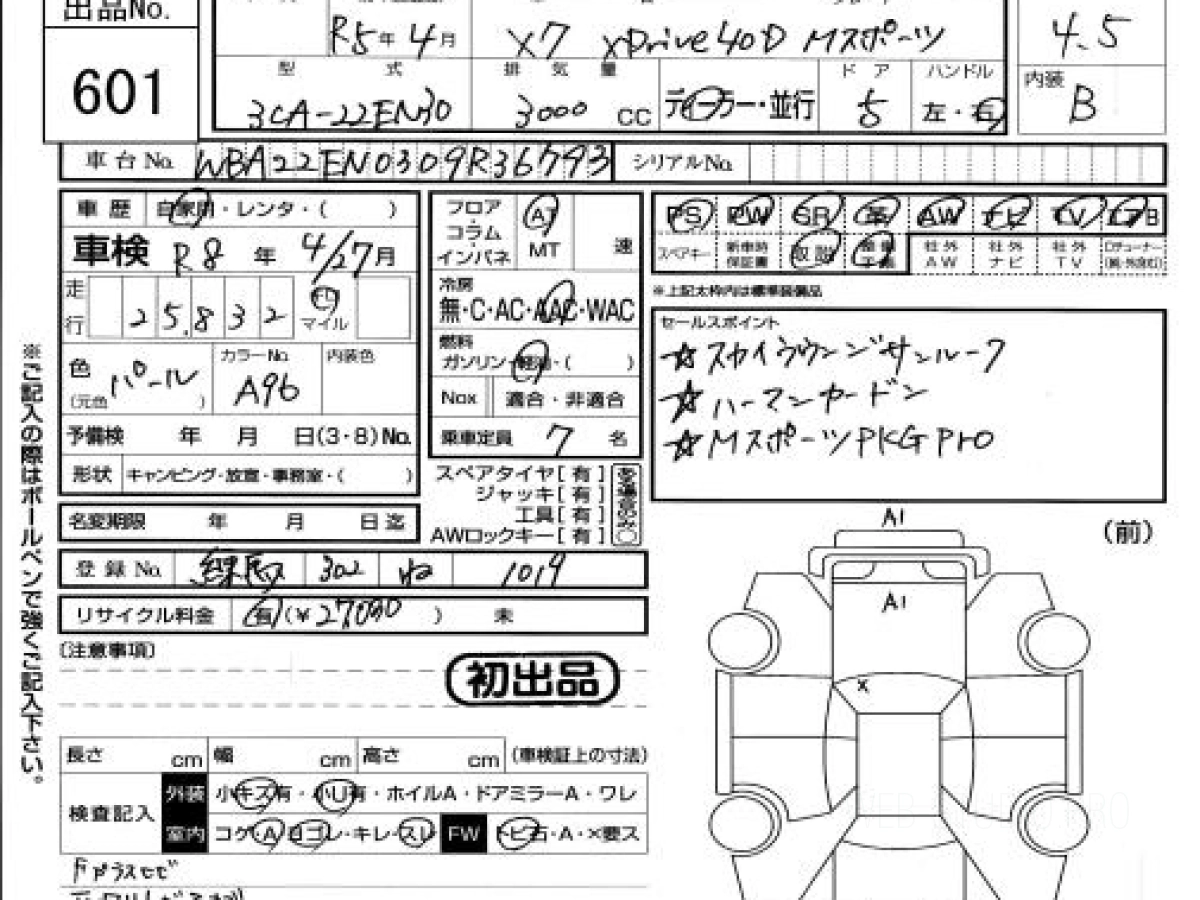 出品No.
601
R5年 4月 X7 xDrive40D Mスポーツ
4.5
型 式 排 気 量 ド ア ハンドル
内装 B
3CA-22EN30 3000 cc ディーラー・並行 5 左・右
車台No. WBA22EN0309R36793 シリアルNo.
車 歴 自家用・レンタ・( )
車検 R8 年 4/27月
走行 25,832 マイル
色 パール (元色 ) カラーNo. A96 内装色
予備検 年 月 日(3・8)No.
形状 キャンピング・放宣・事務室・( )
名変期限 年 月 日迄
登録No. 練馬 302 ね 1019
リサイクル料金 有 (¥27,030 ) 未
フロア・コラム・インパネ AT MT 速
冷房
無・C・AC・AAC・WAC
燃料
ガソリン・軽油・( )
Nox 適合・非適合
乗車定員 7 名
スペアタイヤ[ 有 ]
ジャッキ[ 有 ]
工具[ 有 ]
AWロックキー[ 有 ]
ある場合のみ○
PS PW SR 革 AW ナビ TV エアB
スペアキー 新車時保証書 取説 整備手帳 社外AW 社外ナビ 社外TV Dチューナー
※上記太枠内は標準装備品
セールスポイント
☆スカイラウンジサンルーフ
☆ハーマンカードン
☆MスポーツPKG Pro
(前)
A1
A1
X
(注意事項)
初出品
長さ cm 幅 cm 高さ cm (車検証上の寸法)
検査記入 外装 小キズ有・小U有・ホイルA・ドアミラーA・ワレ
室内 コゲ・A・ヨゴレ・キレ・スレ FW トビ石・A・×要ス
Fガラスヒビ
※ご記入の際はボールペンで強くご記入下さい。